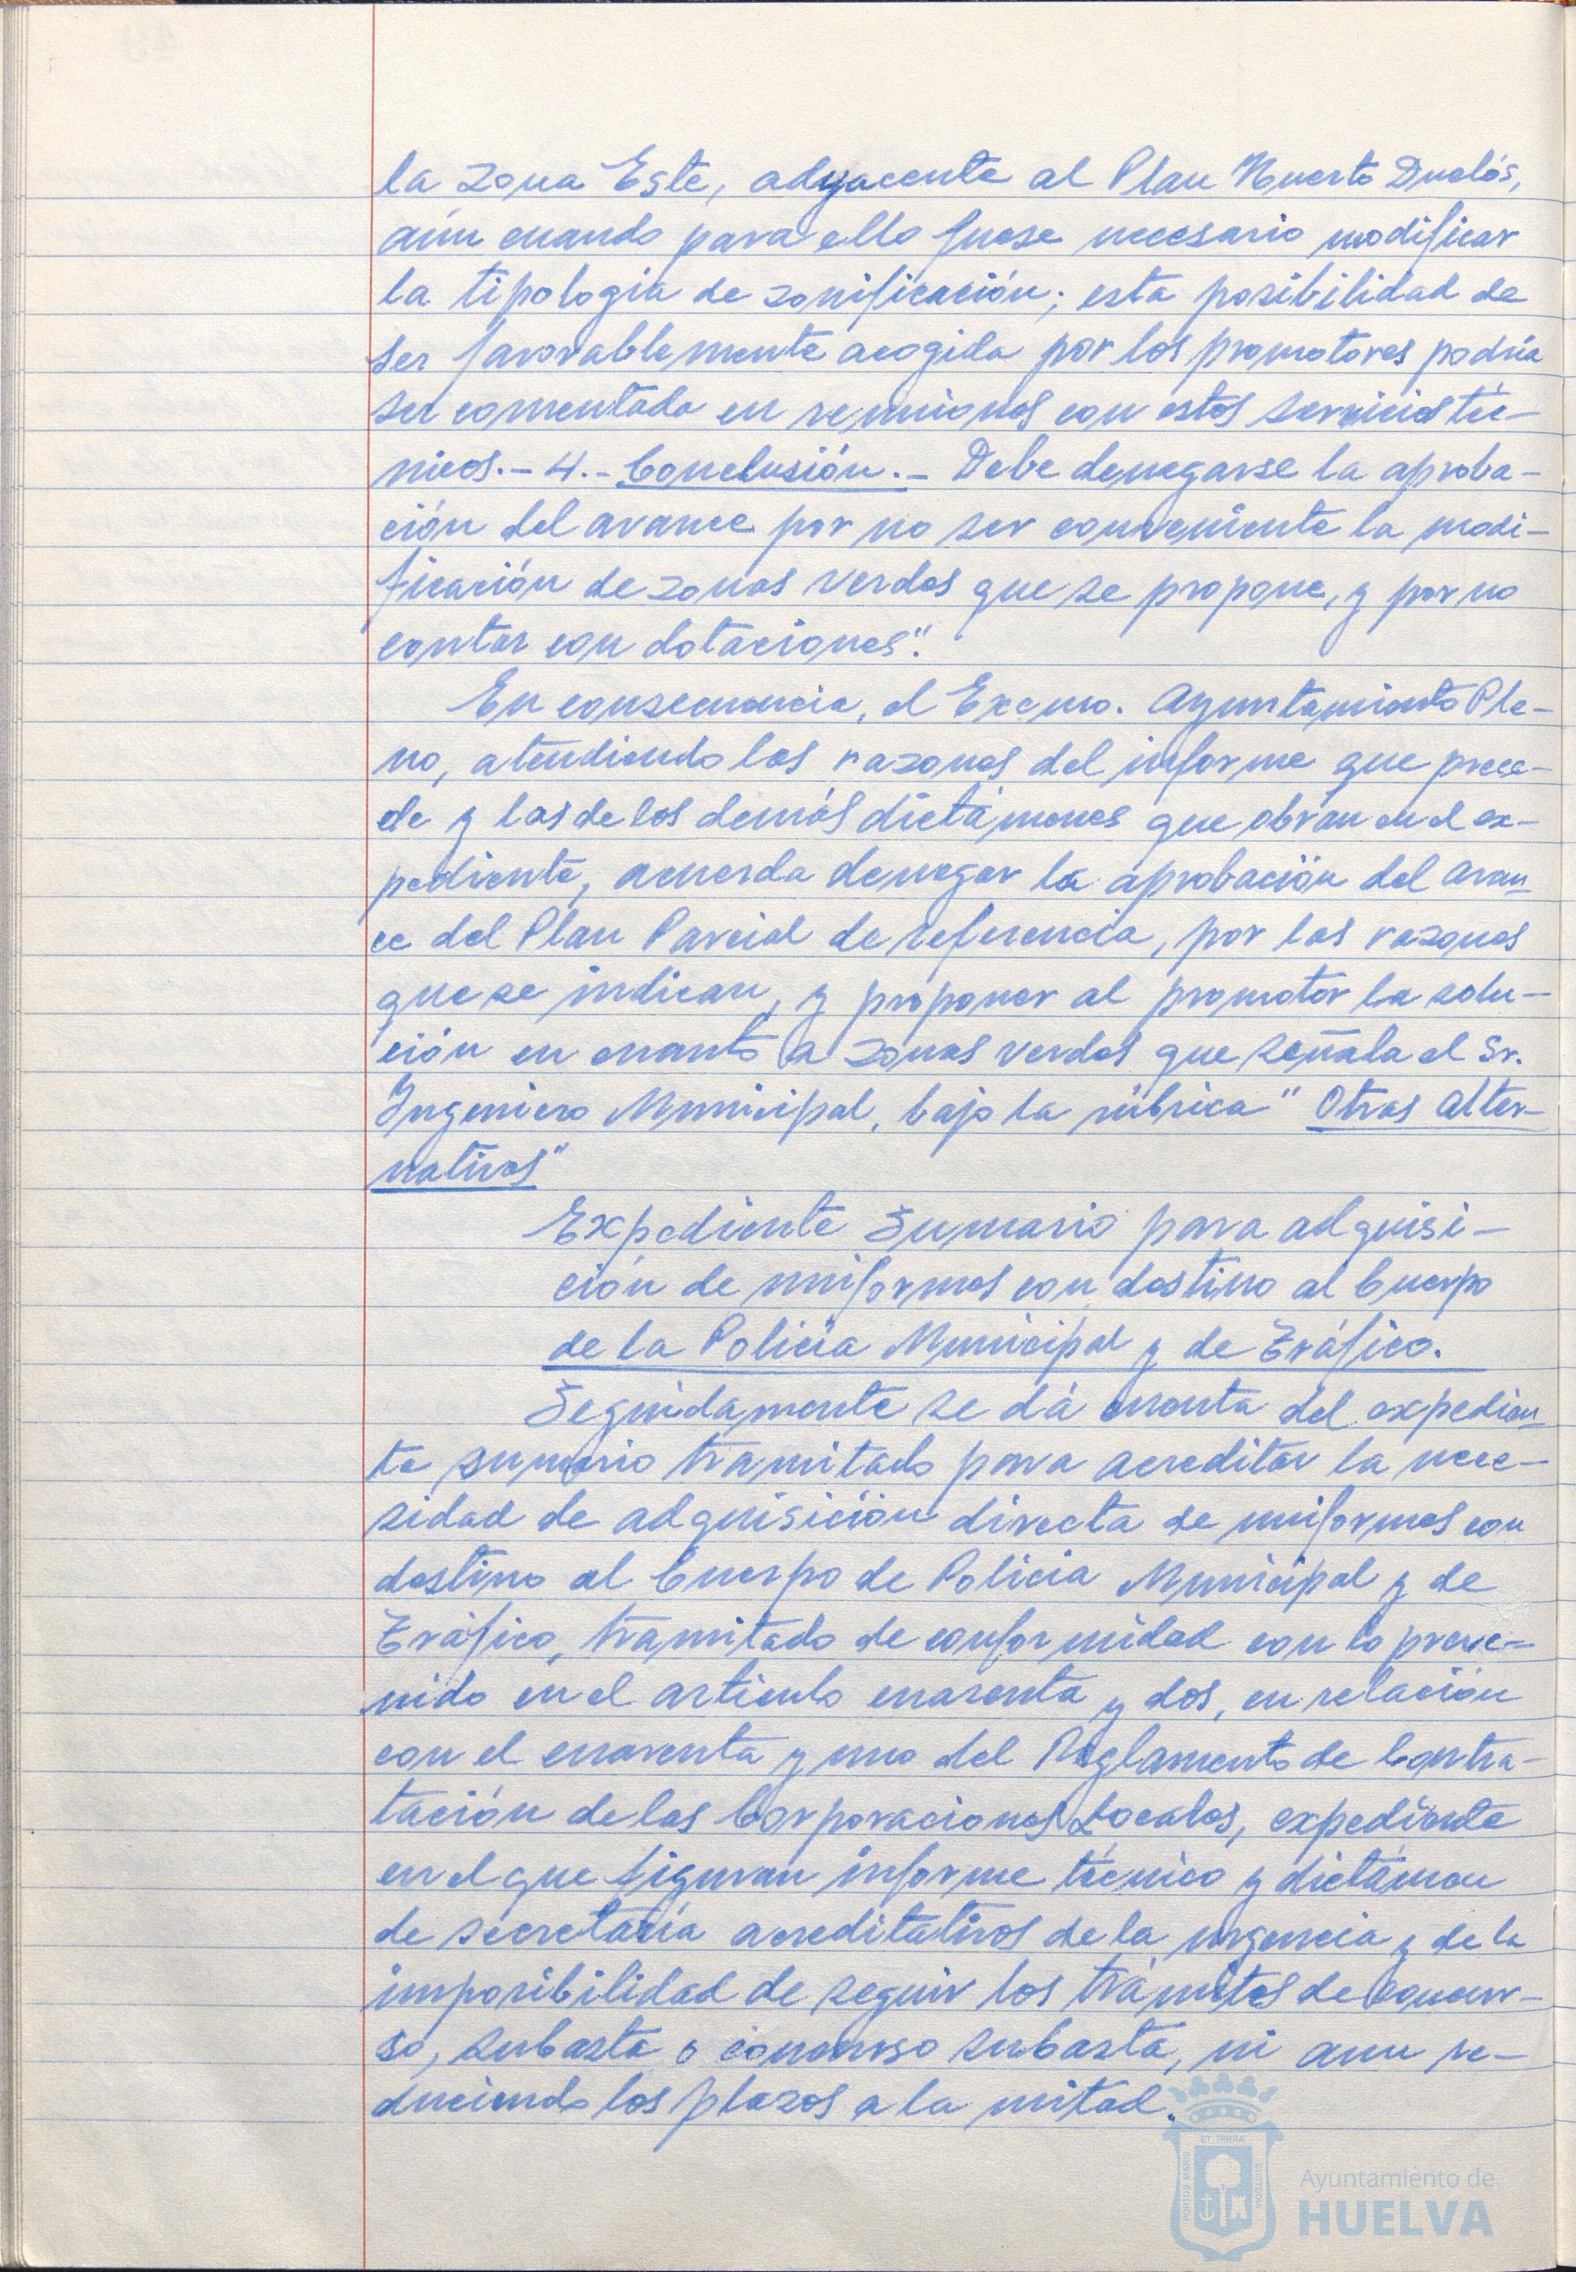 la zona Este, adyacente al Plan Huerto Duclós,
aún cuando para ello fuese necesario modificar
la tipología de zonificación; esta posibilidad de
ser favorablemente acogida por los promotores podría
ser comentada en reuniones con estos servicios téc-
nicos.- 4.- Conclusión.- Debe denegarse la aproba-
ción del avance por no ser conveniente la modi-
ficación de zonas verdes que se propone, y por no
contar con dotaciones".
En consecuencia, el Excmo. Ayuntamiento Ple-
no, atendiendo las razones del informe que prece-
de y las de los demás dictámenes que obran en el ex-
pediente, acuerda denegar la aprobación del avan-
ce del Plan Parcial de referencia, por las razones
que se indican, y proponer al promotor la solu-
ción en cuanto a zonas verdes que señala el Sr.
Ingeniero Municipal, bajo la rúbrica "Otras alter-
nativas"
Expediente Sumario para adquisi-
ción de uniformes con destino al Cuerpo
de la Policía Municipal y de Tráfico.
Seguidamente se dá cuenta del expedien-
te sumario tramitado para acreditar la nece-
sidad de adquisición directa de uniformes con
destino al Cuerpo de Policía Municipal y de
Tráfico, tramitado de conformidad con lo preve-
nido en el artículo cuarenta y dos, en relación
con el cuarenta y uno del Reglamento de Contra-
tación de las Corporaciones Locales, expediente
en el que figuran informe técnico y dictámen
de secretaría acreditativos de la urgencia y de la
imposibilidad de seguir los trámites de concur-
so, subasta o concurso subasta, ni aun re-
duciendo los plazos a la mitad.
PORTUS MARIS
ET TERRAE
CUSTODIA
Ayuntamiento de
HUELVA